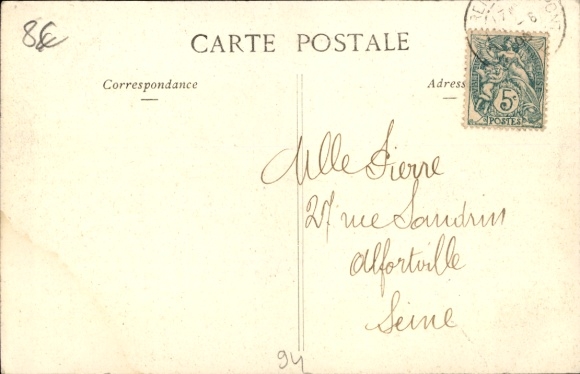 8€
CARTE POSTALE
Correspondance
Adresse
5c
POSTES
Mlle Pierre
27 rue Sandrin
Alfortville
Seine
94